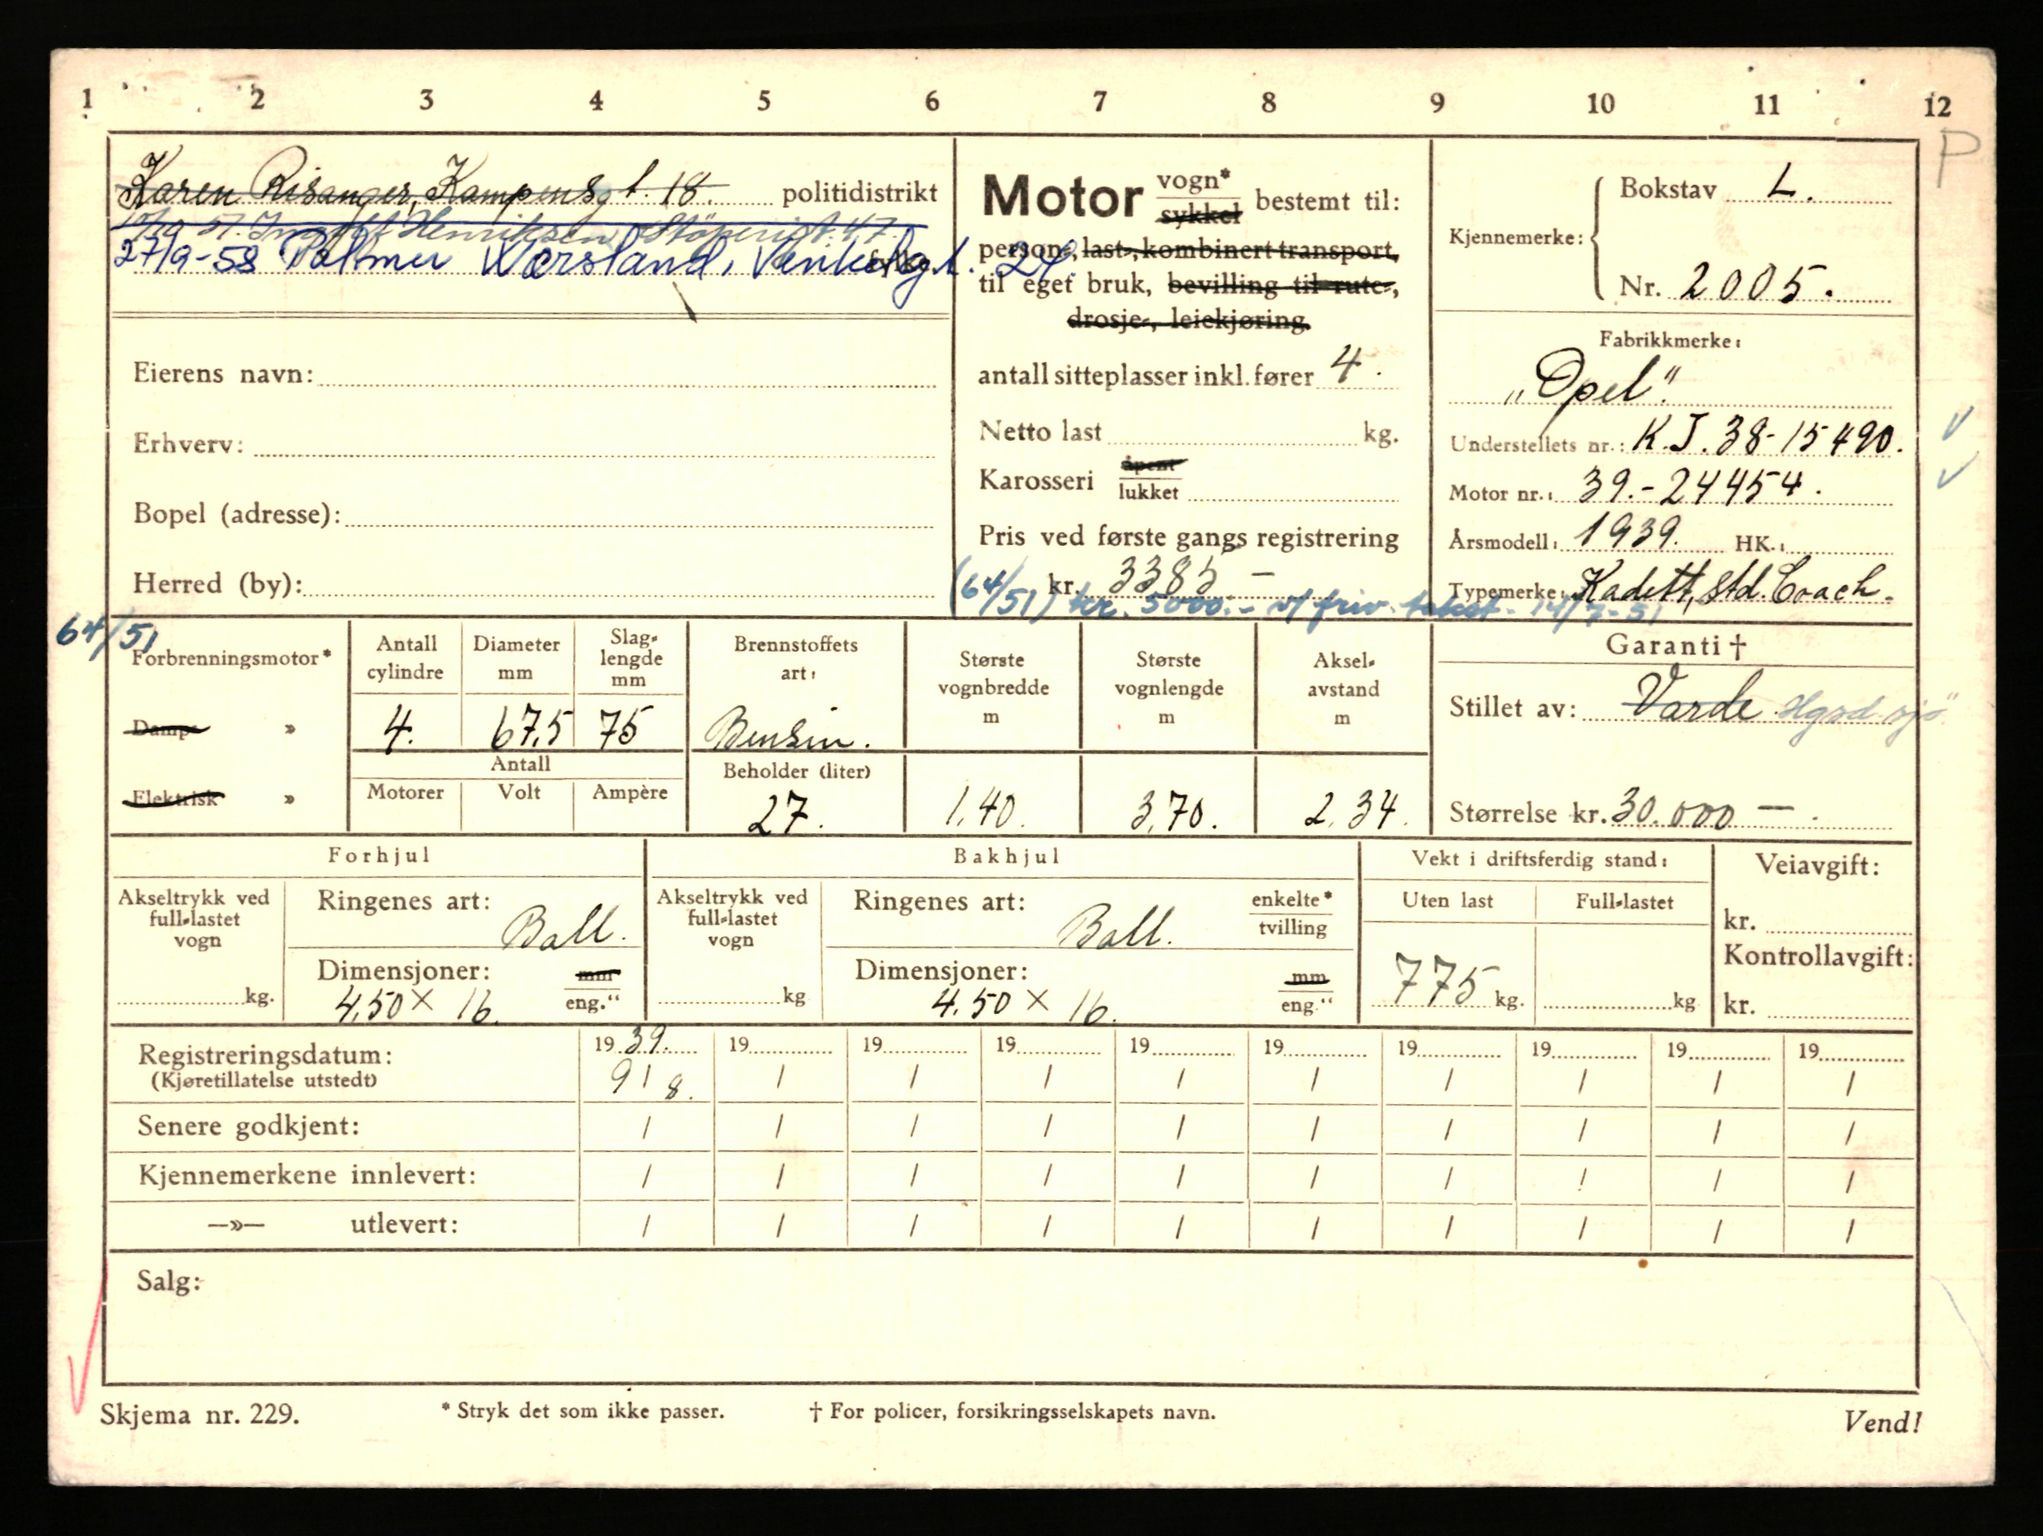 1 2 3 4 5 6 7 8 9 10 11 12
P
Karen Risanger, Kampensg t. 18. politidistrikt
Henriksen, Støperigt. 47.
27/9-58 Palmer Wersland, Venkelsgt. 24.
Motor vogn* sykkel bestemt til:
person-, last-, kombinert transport,
til eget bruk, bevilling til rute-,
drosje-, leiekjøring.
antall sitteplasser inkl. fører 4.
Netto last kg.
Karosseri åpent lukket
Pris ved første gangs registrering
kr. 3385 –
(64/51) kr. 5000.- v/ priv. takst - 14/7-51
Kjennemerke:
Bokstav L.
Nr. 2005.
Fabrikkmerke:
„Opel".
Understellets nr.: K.J. 38-15490.
Motor nr.: 39.-24454.
Årsmodell: 1939. HK.:
Typemerke: Kadett, Std. Coach.
Eierens navn:
Erhverv:
Bopel (adresse):
Herred (by):
64/51
Forbrenningsmotor*
Damp- »
Elektrisk »
Antall cylindre
4.
Diameter mm
67,5
Slag-lengde mm
75
Antall
Motorer Volt Ampère
Brennstoffets art:
Bensin.
Beholder (liter)
27.
Største vognbredde m
1,40.
Største vognlengde m
3,70.
Aksel-avstand m
2.34.
Garanti †
Stillet av: Varde
Størrelse kr. 30.000 –.
Forhjul
Akseltrykk ved full-lastet vogn
kg.
Ringenes art: Ball.
Dimensjoner: mm eng."
4,50 × 16.
Bakhjul
Akseltrykk ved full-lastet vogn
kg
Ringenes art: enkelte* tvilling
Ball.
Dimensjoner: mm eng."
4.50 × 16.
Vekt i driftsferdig stand:
Uten last Full-lastet
775 kg. kg
Veiavgift:
kr.
Kontrollavgift:
kr.
Registreringsdatum: 19 39. 19 19 19 19 19 19 19 19 19
(Kjøretillatelse utstedt) 9/8. / / / / / / / / /
Senere godkjent: / / / / / / / / / /
Kjennemerkene innlevert: / / / / / / / / / /
—»— utlevert: / / / / / / / / / /
Salg:
Skjema nr. 229. * Stryk det som ikke passer. † For policer, forsikringsselskapets navn. Vend!